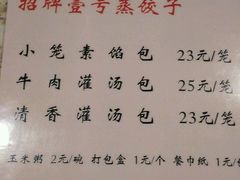 招牌壹号蒸饺子
小笼素馅包 23元/笼
牛肉灌汤包 25元/笼
清香灌汤包 23元/笼
玉米粥 2元/碗 打包盒 1元/个 餐巾纸 1元/